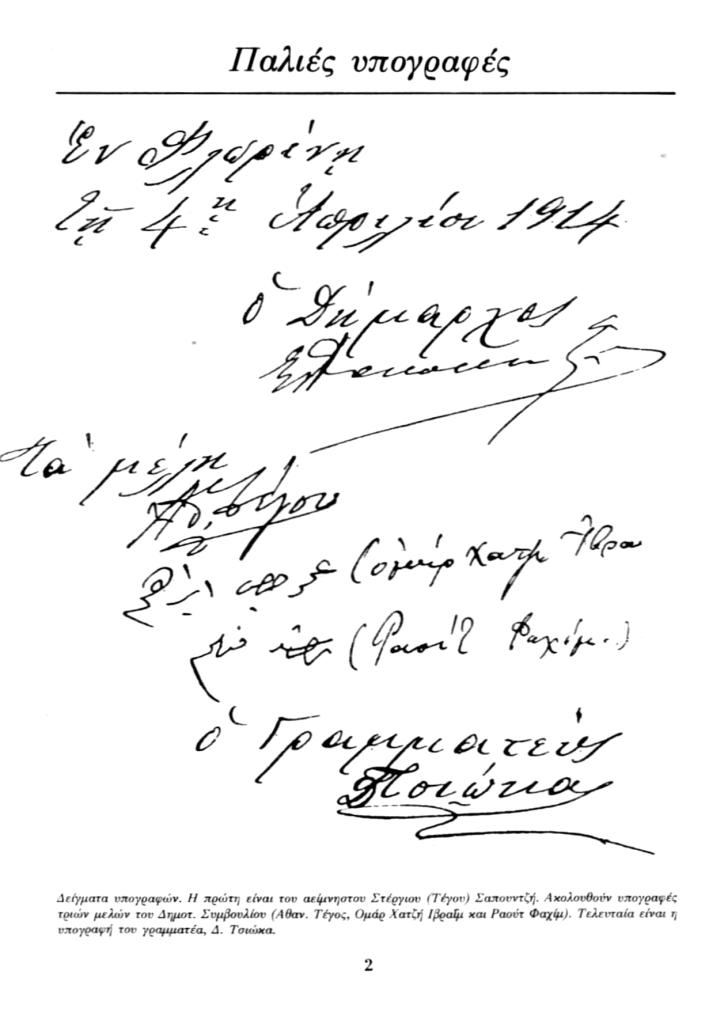 Παλιές υπογραφές
Ἐν Φλωρίνῃ
τῇ 4ῃ Ἀπριλίου 1914
ὁ Δήμαρχος
Τα μέλη
(Ομέρ Χατζη Ιβρα
(Ρασίτ Φαχίμ..)
ὁ Γραμματεύς
Δ Τσιώκας
Δείγματα υπογραφών. Η πρώτη είναι του αείμνηστου Στέργιου (Τέγου) Σαπουντζή. Ακολουθούν υπογραφές
τριών μελών του Δημοτ. Συμβουλίου (Αθαν. Τέγος, Ομάρ Χατζή Ιβραΐμ και Ραούτ Φαχίμ). Τελευταία είναι η
υπογραφή του γραμματέα, Δ. Τσιώκα.
2